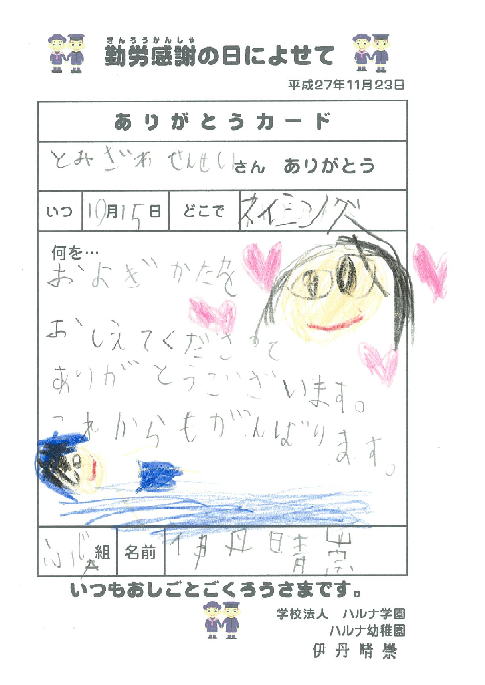 きんろうかんしゃ
勤労感謝の日によせて
平成27年11月23日
ありがとうカード
とみざわ せんせいさん ありがとう
いつ 10月15日 どこで スイミング
何を…
およぎかたを
おしえてくださって
ありがとうございます。
これからもがんばります。
ふじ組 名前 伊丹晴崇
いつもおしごとごくろうさまです。
学校法人 ハルナ学園
ハルナ幼稚園
伊丹晴崇